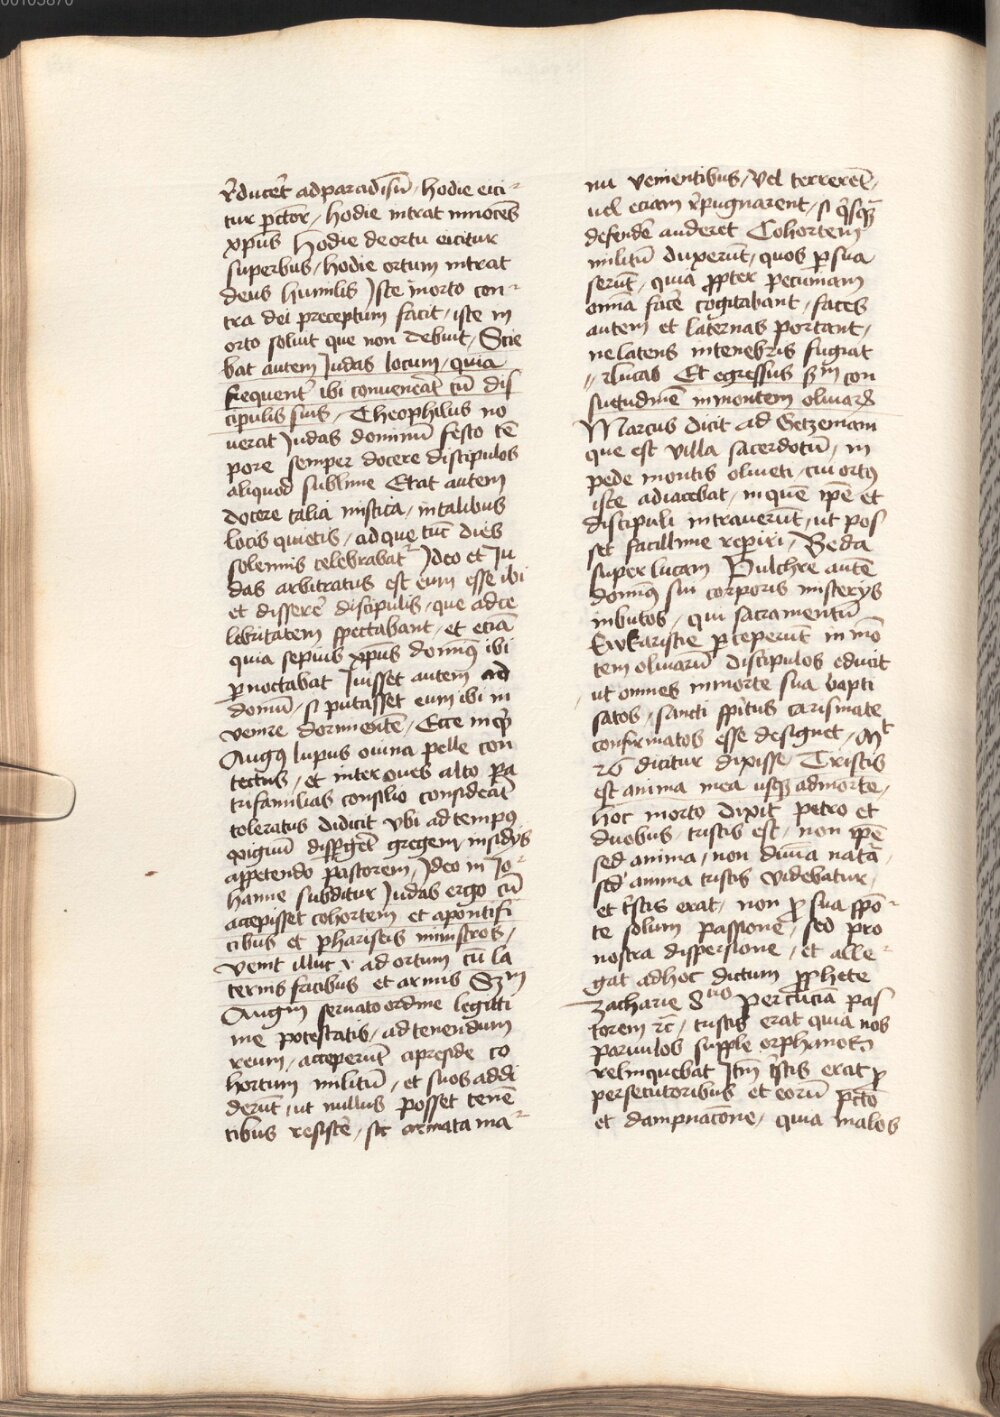 00103870
r̄ducet̄ ad paradisū, hodie eici⸗
tur pctor̄, hodie intrat innocēs
xp̄us Hodie de ortu eicitur
superbus, hodie ortum intrat
deus humilis Iste in orto con⸗
tra dei preceptum facit, iste in
orto soluit que non debuit, Scie
bat autem Iudas locum, quia
frequent̄ ibi conuenerāt cū dis
cipulis suis, Theophilus no
uerat Iudas dominū festo tē
pore semper docere discipulos
aliquod sublime Erat autem
docere talia mistica, in talibus
locis quietis, ad que tūc dies
solennis celebrabat᷑ Ideo et Iu
das arbitratus est eum esse ibi
et disserē discipulis, que ad ce
lebritatem spectabant, et eciā
quia sepius xp̄us domin9 ibi
pernoctabat Iuisset autem ad
domū, si putasset eum ibi in
venire dormientē, Ecce inq̄t
Aug9 lupus ouina pelle con
tectus, et inter oues alto pa
trifamilias consilio considerāt
toleratus didicit vbi ad temp9
exiguū disp̄geret̄ gregem insidijs
appetendo pastorem, Ideo in Io⸗
hanne subditur Iudas ergo cū
accepisset cohortem et a pontifi
cibus et phariseis ministros,
venit illuc ad ortum cū la
ternis facibus et armis Scdm
Augm seruato ordine legitti
me potestatis, ad tenendum
reum, acceperūt a preside co
hortum militū, et suos addi
derūt, ut nullus posset tenē
tibus resistē, sic armata ma⸗
nu venientibus, Vel terrerēt̄,
uel eciam r̄pugnarent, si q̄sq̄
defendē auderet Cohortem
militū duxerūt, quos p sua
serūt, quia ppter pecuniam
omīa facē cogitabant, faces
autem et laternas portant,
ne latens in tenebris fugiat
Lucas Et egressus sm con
suetudinē in montem oliuarꝫ
Marcus dicit ad Getzemani
que est villa sacerdotū, in
pede montis oliueti, cui ort9
iste adiacebat, in quē ip̄e et
discipuli intrauerūt, ut pos
set facillime reperiri, Beda
super lucam Pulchre autē
domin9 sui corporis misterijs
inbutos, qui sacramentū
Ewkaristie perceperūt in mō
tem oliuarū discipulos educit
ut omnes in morte sua bapti
satos, sancti sp̄itus carismate
confirmatos esse designet, Mt
26 dicitur dixisse Tristis
est anima mea usq̄ ad mortē,
hoc in orto dixit petro et
duobus, tristis est, non ip̄e
sed anima, non diuīa natā
sed anima tristis videbatur,
et tristis erat, non p sua spō⸗
te solum passione, sed pro
nostra dispersione, et alle⸗
gat ad hoc dictum pphete
Zacharie Percuciā pas
torem rc̄, tristis erat quia nos
paruulos supple orphanos
relinquebat Itm̄ tristis erat p
persecutoribus et eorū pctō
et dampnacōne, quia malos